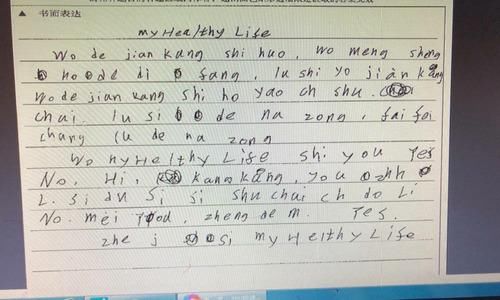 ▲ 书面表达
my Healthy Life
Wo de jian kang shi huo, wo meng sheng
hoode di fang, lu shi yo jiàn kāng
wo de jian kang shi ho yao ch shu.
chai. lu si de na zong, fai fai
chang lu de na zong
Wo hy Healthy Life shi you Yes
No, Hi, kang kang, you
L. si du si si shu chai ch do Li
No. mei, zheng de m. Yes.
zhe j si my Healthy Life